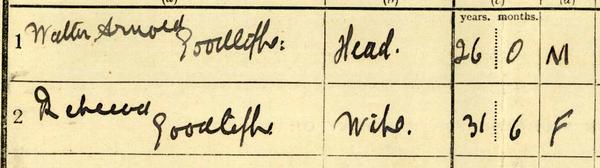 years. months.
1 Walter Arnold Goodliffe. Head. 26 0 M
2 Rebecca Goodliffe. Wife. 31 6 F